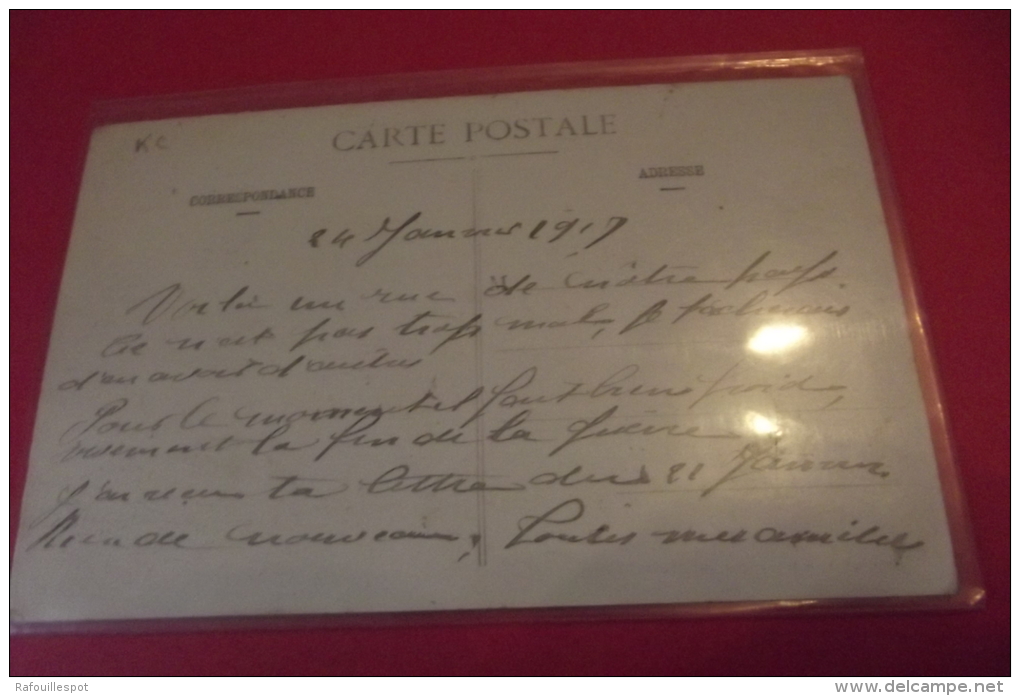 KC
CARTE POSTALE
CORRESPONDANCE
ADRESSE
24 Janvier 1917
Voilà une vue de nôtre pays
Ce n'est pas trop mal, je tâcherais
d'en avoir d'autres
Pour le moment il fait bien froid,
vivement la fin de la guerre
J'ai reçu ta lettre du 21 Janvier
Rien de nouveau, Toutes mes amitiés
Rafouillespot
www.delcampe.net